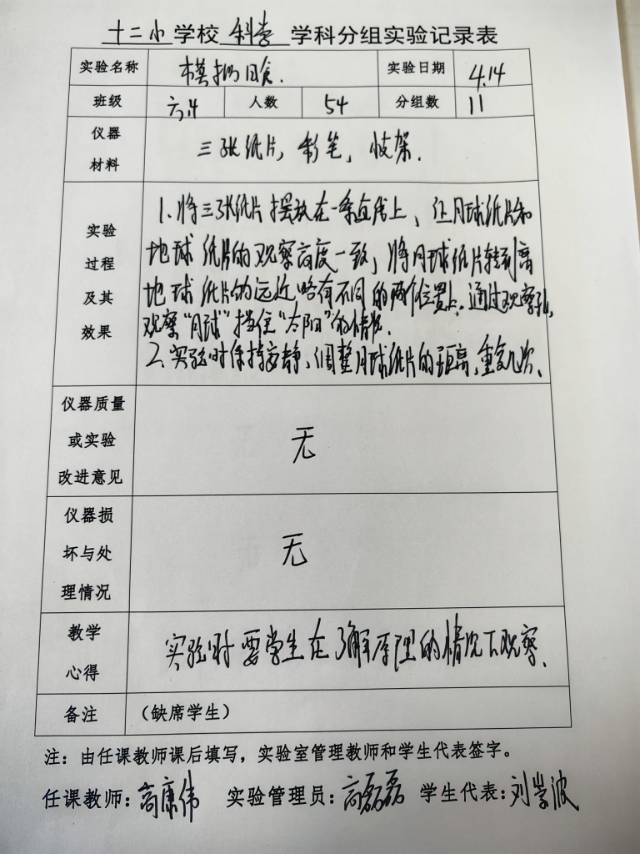 十二小学校 科学 学科分组实验记录表
实验名称 模拟日食. 实验日期 4.14
班级 六.4 人数 54 分组数 11
仪器
材料
三张纸片, 彩笔, 支架.
实验
过程
及其
效果
1.将三张纸片摆放在一条直线上, 让月球纸片和
地球纸片的观察高度一致, 将月球纸片转到离
地球纸片的远近略有不同的两个位置上.通过观察孔,
观察“月球”挡住“太阳”的情况.
2.实验时保持安静,调整月球纸片的距离,重复几次.
仪器质量
或实验
改进意见
无
仪器损
坏与处
理情况
无
教学
心得
实验时要学生在了解原理的情况下观察.
备注 (缺席学生)
注: 由任课教师课后填写, 实验室管理教师和学生代表签字。
任课教师: 高康伟 实验管理员: 高磊磊 学生代表: 刘学波